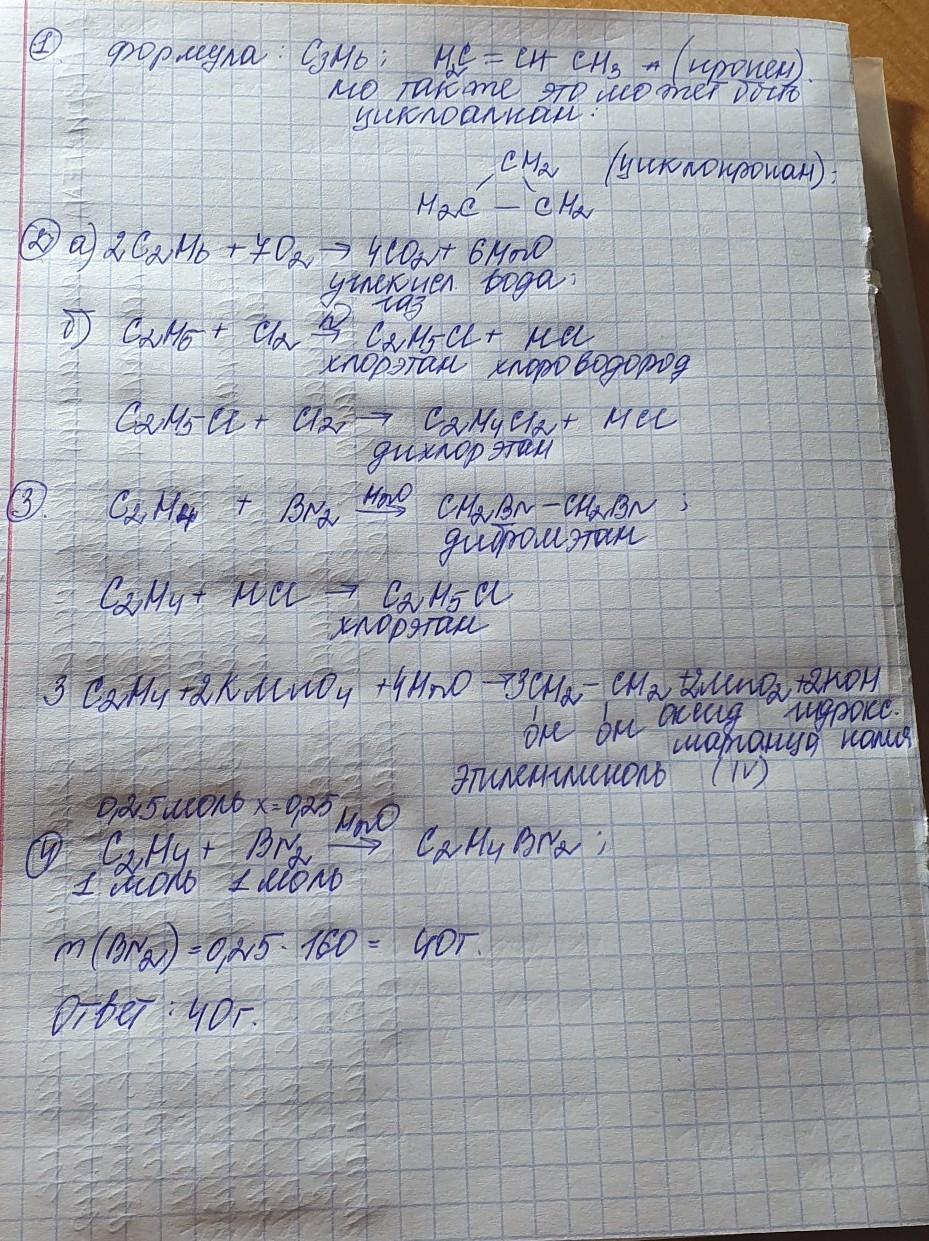 1. формула: C3H6; H2C = CH CH3 - (пропен).
но также это может быть
циклоалкан:
CH2 (циклопропан);
H2C — CH2
2 а) 2C2H6 + 7O2 → 4CO2 + 6H2O
углекисл вода;
газ
б) C2H6 + Cl2 → C2H5Cl + HCl
хлорэтан хлороводород
C2H5Cl + Cl2 → C2H4Cl2 + HCl
дихлорэтан
3. C2H4 + Br2 H2O → CH2Br - CH2Br ;
дибромэтан
C2H4 + HCl → C2H5Cl
хлорэтан
3 C2H4 + 2KMnO4 + 4H2O → 3CH2 - CH2 + 2MnO2 + 2KOH
OH OH оксид гидрокс.
марганца калия
этиленгликоль (IV)
0,25 моль x = 0,25
4 C2H4 + Br2 H2O → C2H4Br2 ;
1 моль 1 моль
m(Br2) = 0,25 · 160 = 40г.
Ответ: 40г.